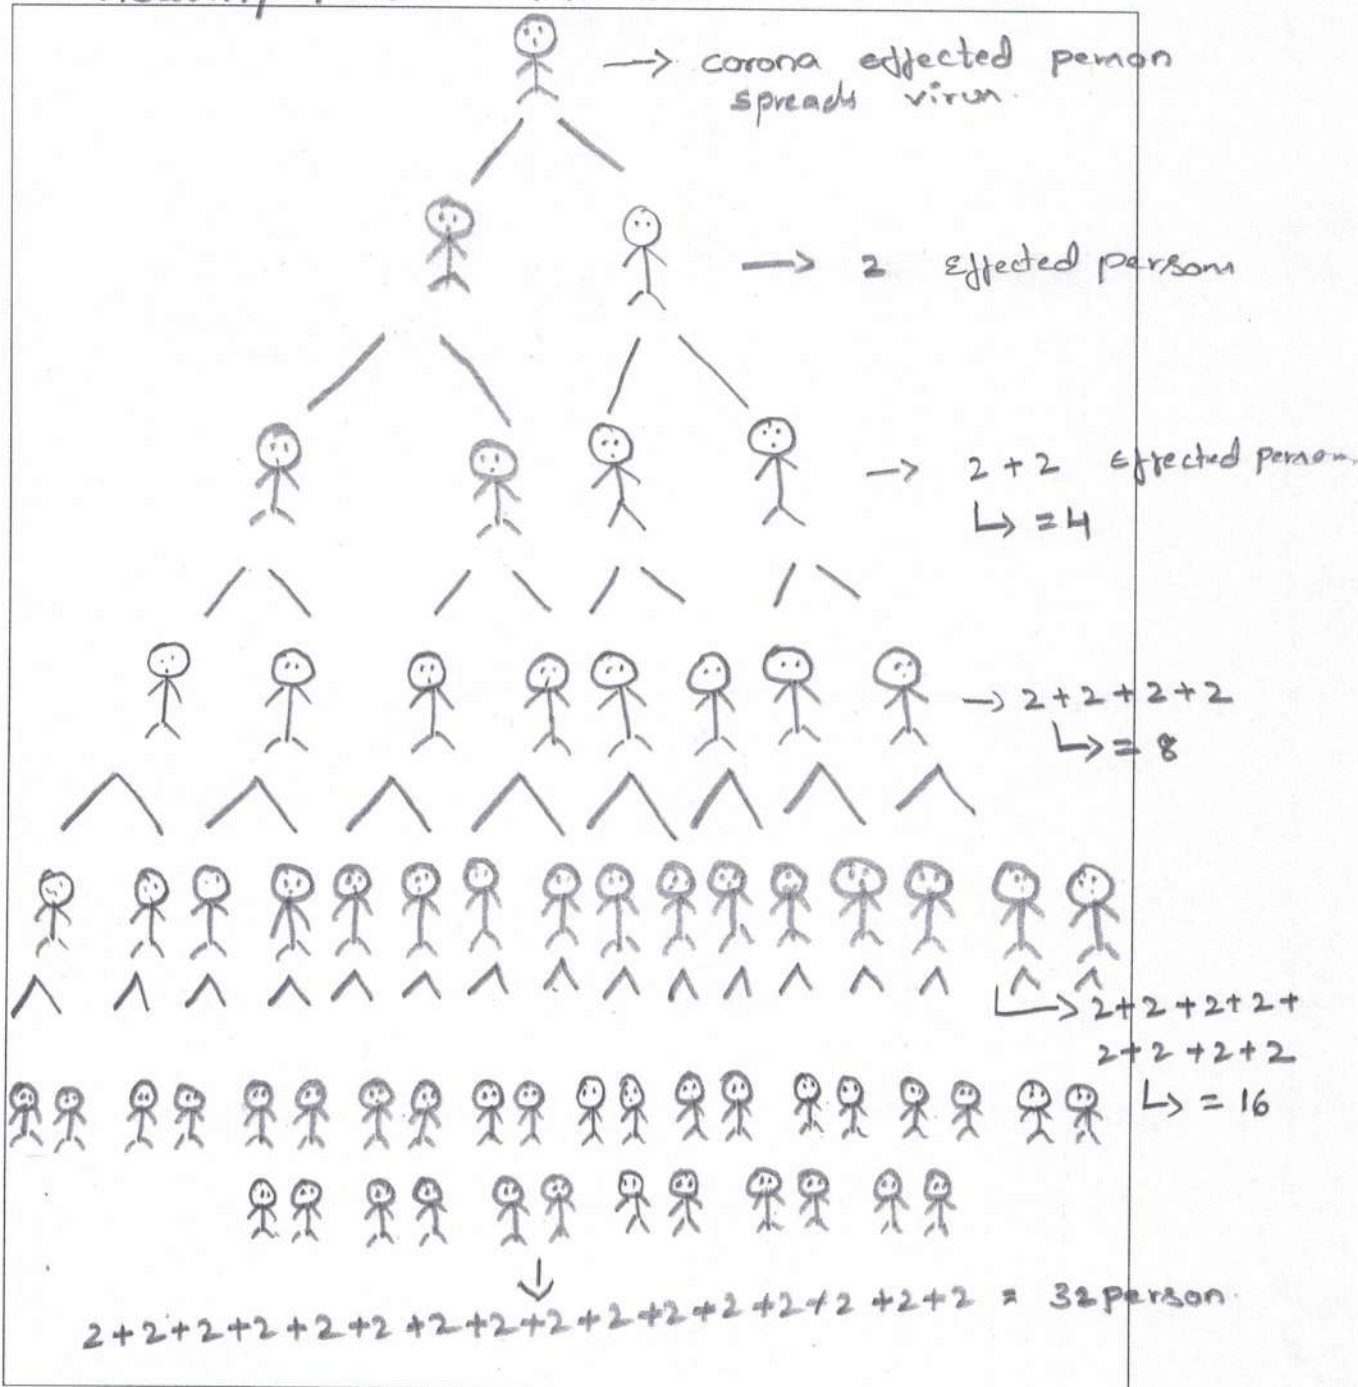 → corona effected person
spreads virus.
→ 2 Effected persons
→ 2 + 2 Effected person
↳ = 4
→ 2 + 2 + 2 + 2
↳ = 8
↳ 2 + 2 + 2 + 2 +
2 + 2 + 2 + 2
↳ = 16
↓
2 + 2 + 2 + 2 + 2 + 2 + 2 + 2 + 2 + 2 + 2 + 2 + 2 + 2 + 2 + 2 = 32 person.